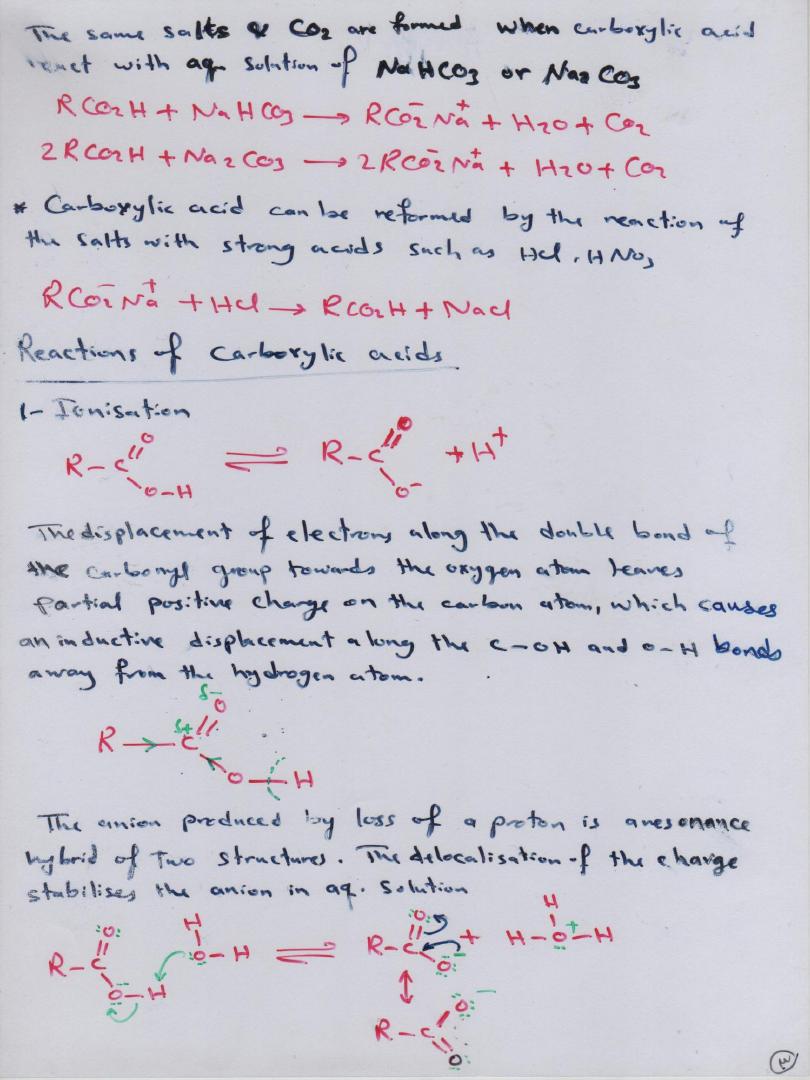 The same salts & CO2 are formed when carboxylic acid
react with aq. solution of NaHCO3 or Na2CO3
RCO2H + NaHCO3 → RCO2⁻Na⁺ + H2O + CO2
2RCO2H + Na2CO3 → 2RCO2⁻Na⁺ + H2O + CO2
* Carboxylic acid can be reformed by the reaction of
the salts with strong acids such as HCl, HNO3
RCO2⁻Na⁺ + HCl → RCO2H + NaCl
Reactions of carboxylic acids
1- Ionisation
R-C=O O-H ⇌ R-C=O O⁻ + H⁺
The displacement of electrons along the double bond of
the carbonyl group towards the oxygen atom leaves
partial positive charge on the carbon atom, which causes
an inductive displacement along the C-OH and O-H bonds
away from the hydrogen atom.
δ-
R → C δ+ =O O-H
The anion produced by loss of a proton is a resonance
hybrid of Two structures. The delocalisation of the charge
stabilises the anion in aq. solution
R-C=O O-H H-O-H ⇌ R-C=O O⁻ + H-O⁺-H H
↕
R-C-O⁻ =O
٣